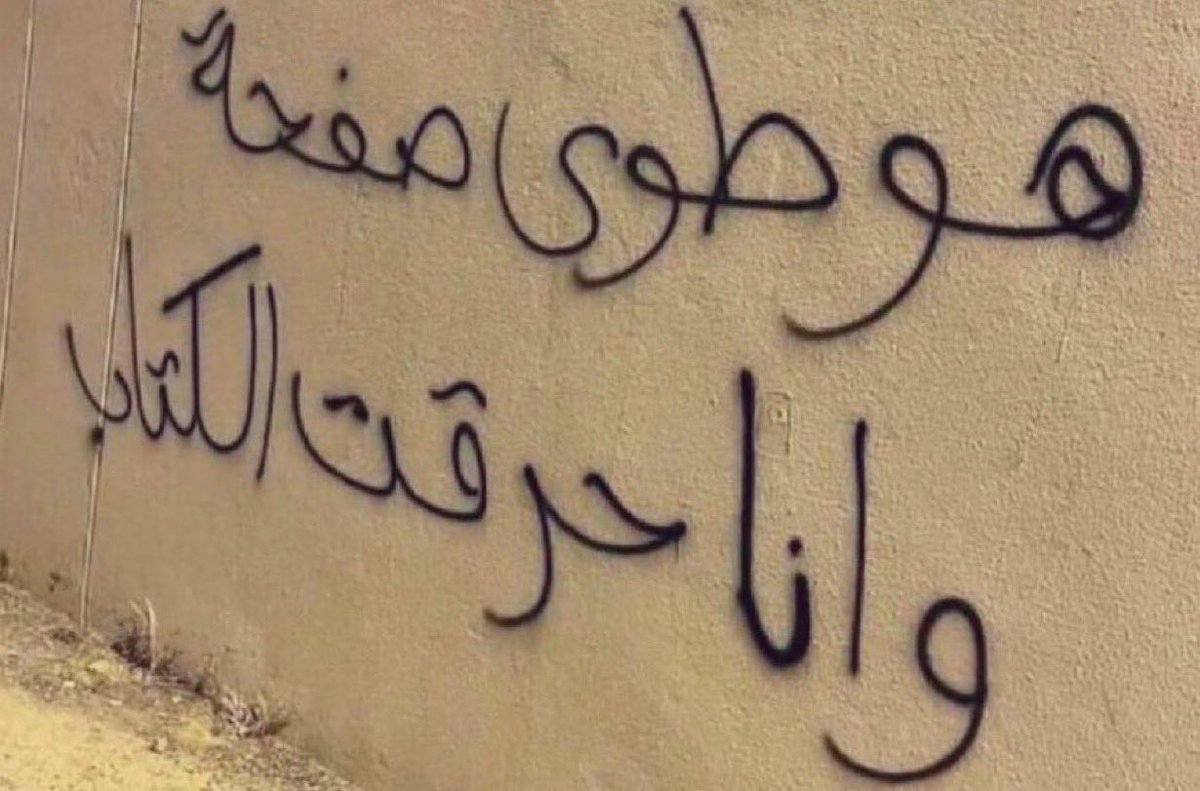 هو طوى صفحة
وانا حرقت الكتاب